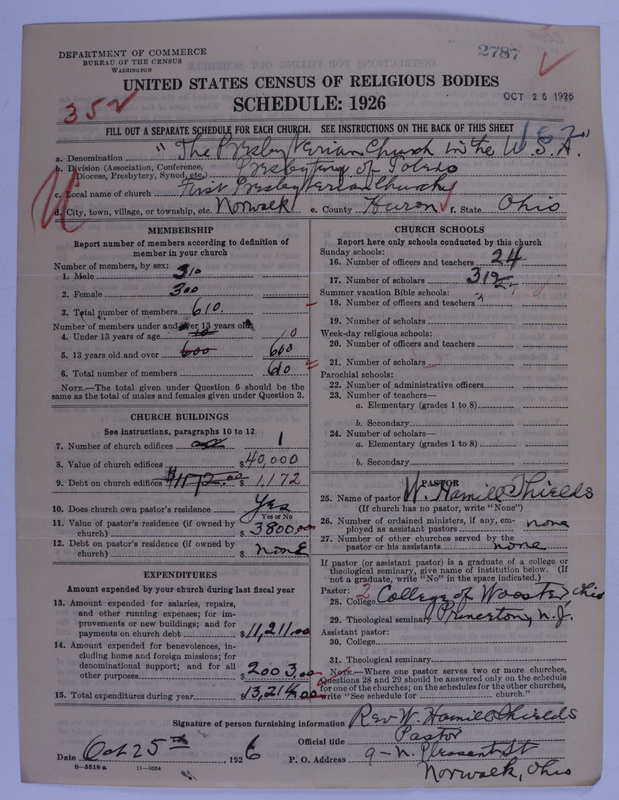 DEPARTMENT OF COMMERCE
BUREAU OF THE CENSUS
WASHINGTON
2787
UNITED STATES CENSUS OF RELIGIOUS BODIES
SCHEDULE: 1926
OCT 26 1926
352
FILL OUT A SEPARATE SCHEDULE FOR EACH CHURCH. SEE INSTRUCTIONS ON THE BACK OF THIS SHEET
a. Denomination "The Presbyterian Church in the U.S.A."
b. Division (Association, Conference, Diocese, Presbytery, Synod, etc.) Presbytery of Toledo
c. Local name of church First Presbyterian Church
d. City, town, village, or township, etc. Norwalk e. County Huron f. State Ohio
MEMBERSHIP
Report number of members according to definition of
member in your church
Number of members, by sex:
1. Male 310
2. Female 300
3. Total number of members 610.
Number of members under and over 13 years old:
4. Under 13 years of age 10 10
5. 13 years old and over 600 600
6. Total number of members 610
NOTE.—The total given under Question 6 should be the
same as the total of males and females given under Question 3.
CHURCH BUILDINGS
See instructions, paragraphs 10 to 12
7. Number of church edifices 1
8. Value of church edifices $40,000
9. Debt on church edifices $1172.00 $1,172
10. Does church own pastor's residence Yes
Yes or No
11. Value of pastor's residence (if owned by
church) $3800.00
12. Debt on pastor's residence (if owned by
church) $none
EXPENDITURES
Amount expended by your church during last fiscal year
13. Amount expended for salaries, repairs,
and other running expenses; for im-
provements or new buildings; and for
payments on church debt $11,211.00
14. Amount expended for benevolences, in-
cluding home and foreign missions; for
denominational support; and for all
other purposes $2003.00
15. Total expenditures during year $13,214.00
CHURCH SCHOOLS
Report here only schools conducted by this church
Sunday schools:
16. Number of officers and teachers 24
17. Number of scholars 312
Summer vacation Bible schools:
18. Number of officers and teachers
19. Number of scholars
Week-day religious schools:
20. Number of officers and teachers
21. Number of scholars
Parochial schools:
22. Number of administrative officers
23. Number of teachers—
a. Elementary (grades 1 to 8)
b. Secondary
24. Number of scholars—
a. Elementary (grades 1 to 8)
b. Secondary
PASTOR
25. Name of pastor W. Hamill Shields
(If church has no pastor, write "None")
26. Number of ordained ministers, if any, em-
ployed as assistant pastors none
27. Number of other churches served by the
pastor or his assistants none
If pastor (or assistant pastor) is a graduate of a college or
theological seminary, give name of institution below. (If
not a graduate, write "No" in the space indicated.)
Pastor:
28. College College of Wooster Ohio
29. Theological seminary Princeton, N.J.
Assistant pastor:
30. College
31. Theological seminary
NOTE.—Where one pastor serves two or more churches,
Questions 28 and 29 should be answered only on the schedule
for one of the churches; on the schedules for the other churches,
write "See schedule for church."
Signature of person furnishing information Rev. W. Hamill Shields
Official title Pastor
Date Oct 25th, 1926 P. O. Address 9-N. Pleasant St
Norwalk, Ohio
8—5518 a 11—8054